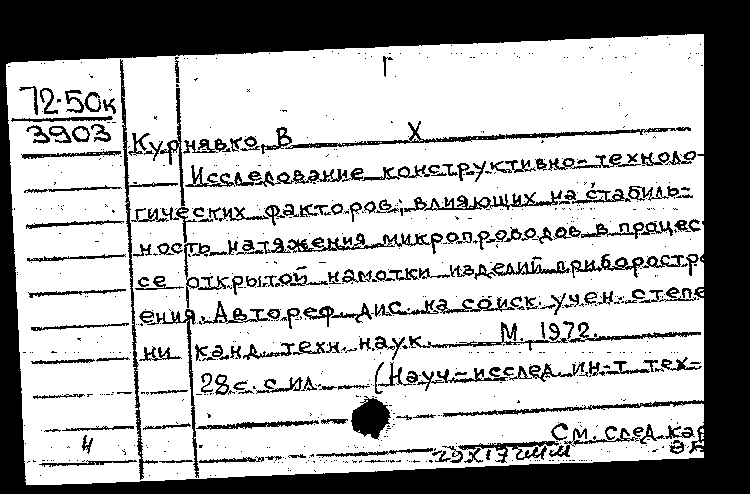 72-50к
3903
Курнявко, В Х
Исследование конструктивно-техноло-
гических факторов, влияющих на стабиль-
ность натяжения микропроводов в процес-
се открытой намотки изделий приборостро
ения. Автореф. дис. на соиск. учен. степе
ни канд. техн. наук. М., 1972.
28 с. с ил. (Науч-исслед. ин-т тех-
См. след. кар
4
29х17 2мм